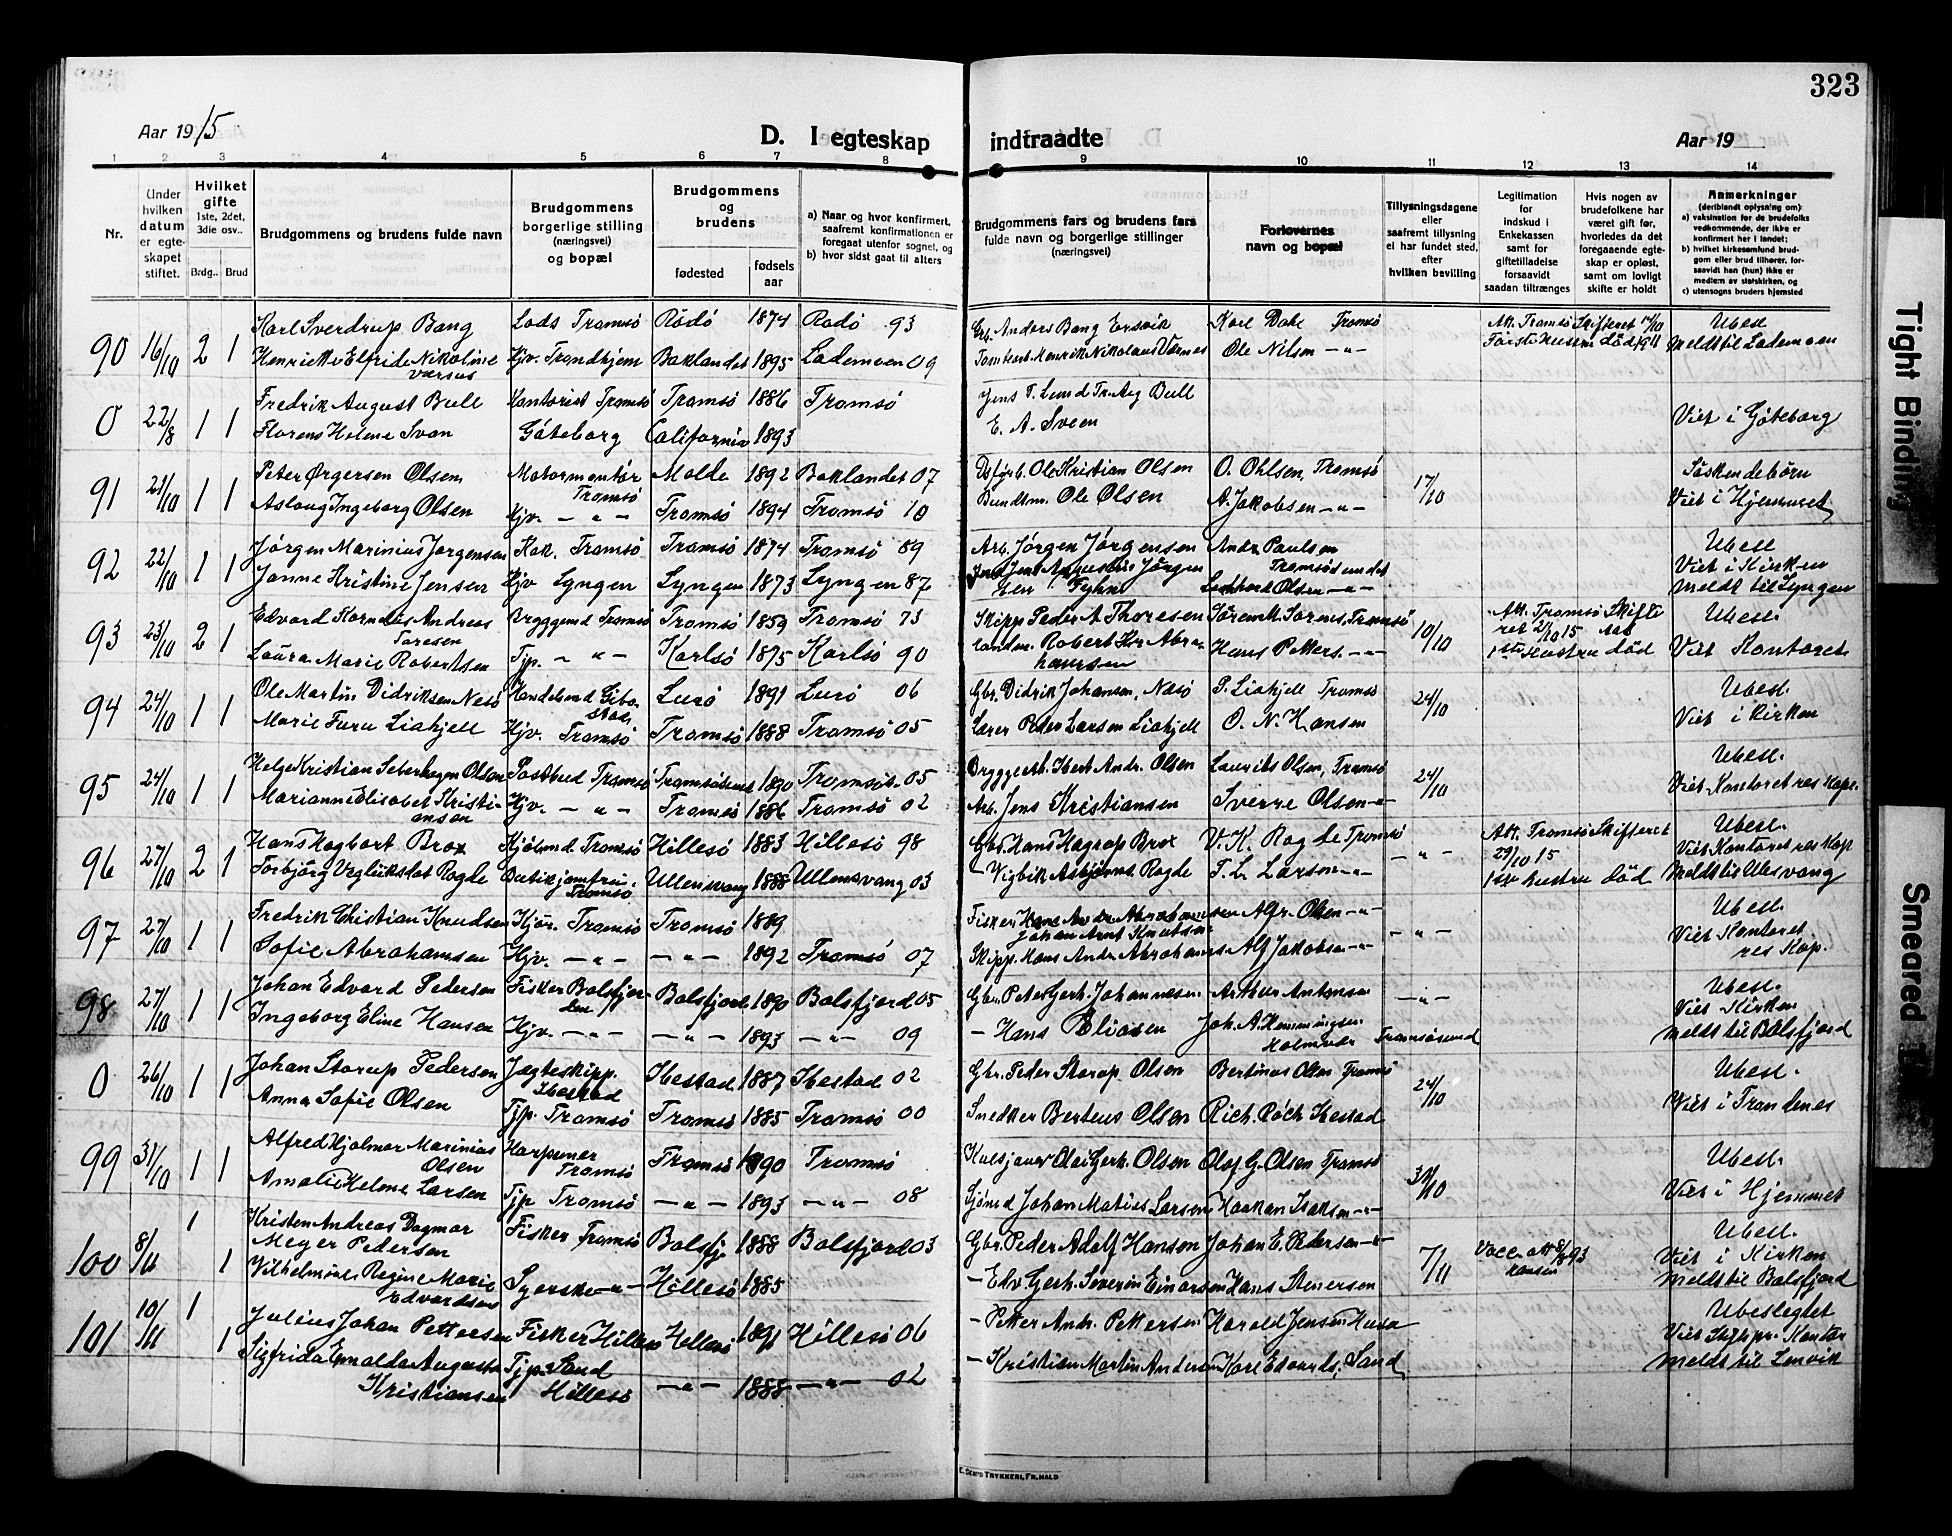 323
Aar 1915
D. I egteskap indtraadte
Aar 19
1 2 3 4 5 6 7 8 9 10 11 12 13 14
Nr.
Under hvilken datum er egteskapet stiftet.
Hvilket gifte 1ste, 2det, 3die osv..
Brdg.. Brud
Brudgommens og brudens fulde navn
Brudgommens borgerlige stilling (næringsvei) og bopæl
Brudgommens og brudens
fødested
fødsels aar
a) Naar og hvor konfirmert, saafremt konfirmationen er foregaat utenfor sognet, og
b) hvor sidst gaat til alters
Brudgommens fars og brudens fars fulde navn og borgerlige stillinger (næringsvei)
Forlovernes navn og bopæl
Tillysningsdagene eller saafremt tillysning ei har fundet sted, efter hvilken bevilling
Legitimation for indskud i Enkekassen samt for giftetilladelse forsaavidt saadan tiltrænges
Hvis nogen av brudefolkene har været gift før, hvorledes da det foregaaende egteskap er opløst, samt om lovligt skifte er holdt
Anmerkninger (deriblandt oplysning om):
a) vaksination for de brudefolks vedkommende, der ikke er konfirmert her i landet;
b) hvilket kirkesamfund brudgom eller brud tilhører, forsaavidt han (hun) ikke er medlem av statskirken, og
c) utensogns bruders hjemsted
90 16/10 2 1 Karl Sverdrup Bang Lods Tromsö Rödö 1874 Rödö 93 Anders Bang Ersvik Karl Dahl Tromsö Att. Tromsö Skifteret 14/10 Ubesl.
Henriette Elfride Nikoline Værnes Hjv. Trondhjem Baklandet 1895 Lademoen 09 Henrik Nikolaus Værnes Ole Nilsen -"- Første hustru död 1911 Meldt til Lademoen
0 22/8 1 1 Fredrik August Bull Kontorist Tromsö Tromsö 1886 Tromsö Jens T. Lund Bull
Florens Helene Svan Göteborg Californien 1893 E. A. Sveen Viet i Göteborg
91 21/10 1 1 Peter Ørgersen Olsen Motormontör Tromsö Molde 1892 Baklandet 07 Ole Kristian Olsen O. Ohlsen, Tromsö 17/10 Söskendebörn
Aslaug Ingeborg Olsen Hjv. -"- Tromsö 1894 Tromsö 10 Bundtm. Ole Olsen A. Jakobsen -"- Viet i Hjemmet
92 22/10 1 1 Jörgen Marinius Jörgensen Kok. Tromsö Tromsö 1874 Tromsö 89 Arb. Jörgen Jörgensen Andr Paulsen Tromsösundet Ubesl
Janne Kristine Jensen Hjv Lyngen Lyngen 1873 Lyngen 87 Olsen -"- Viet i Kirken
Meldt til Lyngen
93 23/10 2 1 Edvard Kornelius Andreas Toresen Bryggemd Tromsö Tromsö 1859 Tromsö 73 Skipp Peder A Thoresen Sörem Sörens, Tromsö 10/10 Att. Tromsö Skifteret 2/10 15 Ubesl.
Laura Marie Robertsen Tjp. -"- Karlsö 1875 Karlsö 90 Robert Kr. Abrahamsen Hans Petters. -"- 1ste Hustru död Viet Kontoret
94 24/10 1 1 Ole Martin Didriksen Nesö Handelsmd Gibostad Lurö 1891 Lurö 06 Gbr. Didrik Johansen, Nesö P. Liahjell Tromsö 24/10 Ubesl.
Marie Furu Liahjell Hjv. Tromsö Tromsö 1888 Tromsö 05 Lærer Peter Larsen Liahjell O. N. Hansen Viet i Kirken
95 24/10 1 1 Helge Kristian Olsen Postbud Tromsö Tromsösund 1890 Tromsös. 05 Bryggearb. Andr. Olsen Laurits Olsen, Tromsö 24/10 Ubesl.
Marianne Elisabet Kristiansen Hjv. -"- Tromsö 1886 Tromsö 02 Arb. Jens Kristiansen Sverre Olsen -"- Viet Kontoret res Kap.
96 27/10 2 1 Hans Hagbart Brox Kjöbmd Tromsö Hillesö 1883 Hillesö 98 Gbr. Hans Hagrop Brox V. K. Rogde Tromsö -"- Att. Tromsö Skifteret 29/10 15 Ubesl.
Torbjörg Rogde Butikjomfru Tromsö Ullensvang 1888 Ullensvang 03 - Vigbik Asbjörns Rogde T. L. Larsen -"- 1ste hustru död Viet Kontoret res Kap
Meldt til Ullensvang
97 27/10 1 1 Fredrik Christian Knudsen Kjör. Tromsö Tromsö 1889 Johan Arnt Knutsen Alfr. Olsen -"- -"- Ubesl.
Sofie Abrahamsen Hjv. -"- -"- 1892 Tromsö 07 Skipp. Hans Andr. Abrahams Alf Jakobsen -"- Viet Kontoret res Kap.
98 27/10 1 1 Johan Edvard Pedersen Fisker Balsfjorden Balsfjord 1890 Balsfjord 05 Gbr. Peter Gerh. Johannesen Arthur Antonsen -"- Ubesl.
Ingeborg Eline Hansen Hjv. -"- -"- 1893 -"- 09 - Hans Eliasen Joh. A. Hemmingsen Tromsösund Viet Kirken
Meldt til Balsfjord
0 26/10 1 1 Johan Storup Pedersen Jægteskipp. Ibestad Ibestad 1887 Ibestad 02 Gbr. Peder Storup Olsen Bertinus Olsen Tromsö 24/10 Ubesl.
Anna Sofie Olsen Tjp. Tromsö Tromsö 1885 Tromsö 00 Snedker Berteus Olsen Rich. Röch Ibestad Viet i Trondenes
99 31/10 1 1 Alfred Hjalmar Marinius Olsen Harpuner Tromsö Tromsö 1890 Tromsö Olai Gerh. Olsen Olaf G. Olsen Tromsö 31/10 Ubesl.
Amalie Helene Larsen Tjp Tromsö -"- 1893 -"- 08 Sjömd Johan Matias Larsen Haakon Isaksen -"- Viet i Hjemmet
100 8/11 1 1 Kristen Andreas Dagmar Meyer Pedersen Fisker Tromsö Balsfj 1888 Balsfjord 03 Gbr. Peder Adolf Hansen Johan E. Pedersen -"- 7/11 Vacc. att 8/8 93 Hansen Ubesl.
Vilhelmine Regine Marie Edvardsen Syerske -"- Hillesö 1885 - Edv Gerh. Severin Einarsen Hans Stenersen Viet i Kirken
Meldt til Balsfjord
101 10/11 1 1 Julius Johan Pettersen Fisker Hillesö Hillesö 1891 Hillesö 06 - Petter Andr. Pettersen Harald Jensen Ubeslegtet
Sigfrida Emalda Augusta Kristiansen Tjp. Sand Hillesö -"- 1888 -"- 02 - Kristian Martin Andersen Karl Edvards, Sand Viet Kontor
Meldt til Lenvik
E. SEM'S TRYKKERI, FR.HALD
Tight Binding
Smeared